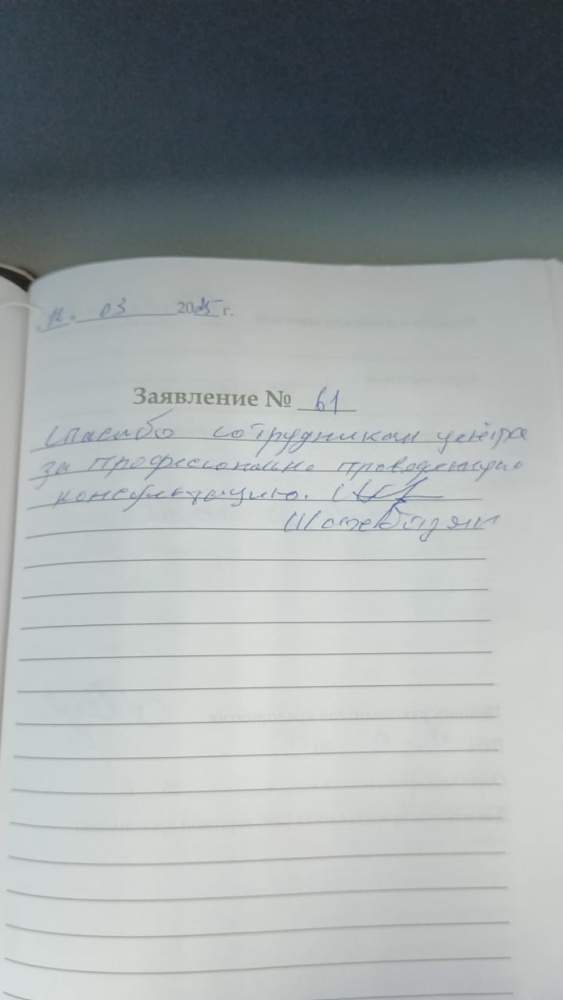 03 2025 г.
Заявление № 61
Спасибо сотрудникам центра
за профессионально проведенную
консультацию.